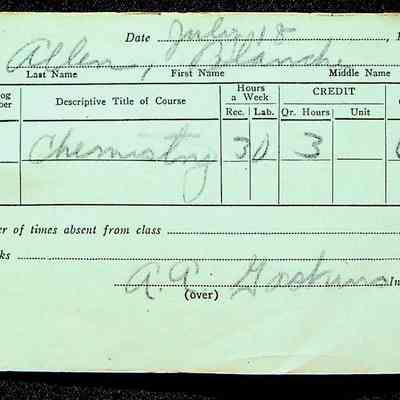 Date July 18, 1
Allen, Blanche
Last Name First Name Middle Name
og
ber
Descriptive Title of Course
Hours
a Week
CREDIT
Rec. Lab. Qr. Hours Unit
Chemistry 3 0 3
er of times absent from class
ks
A. P. In
(over)